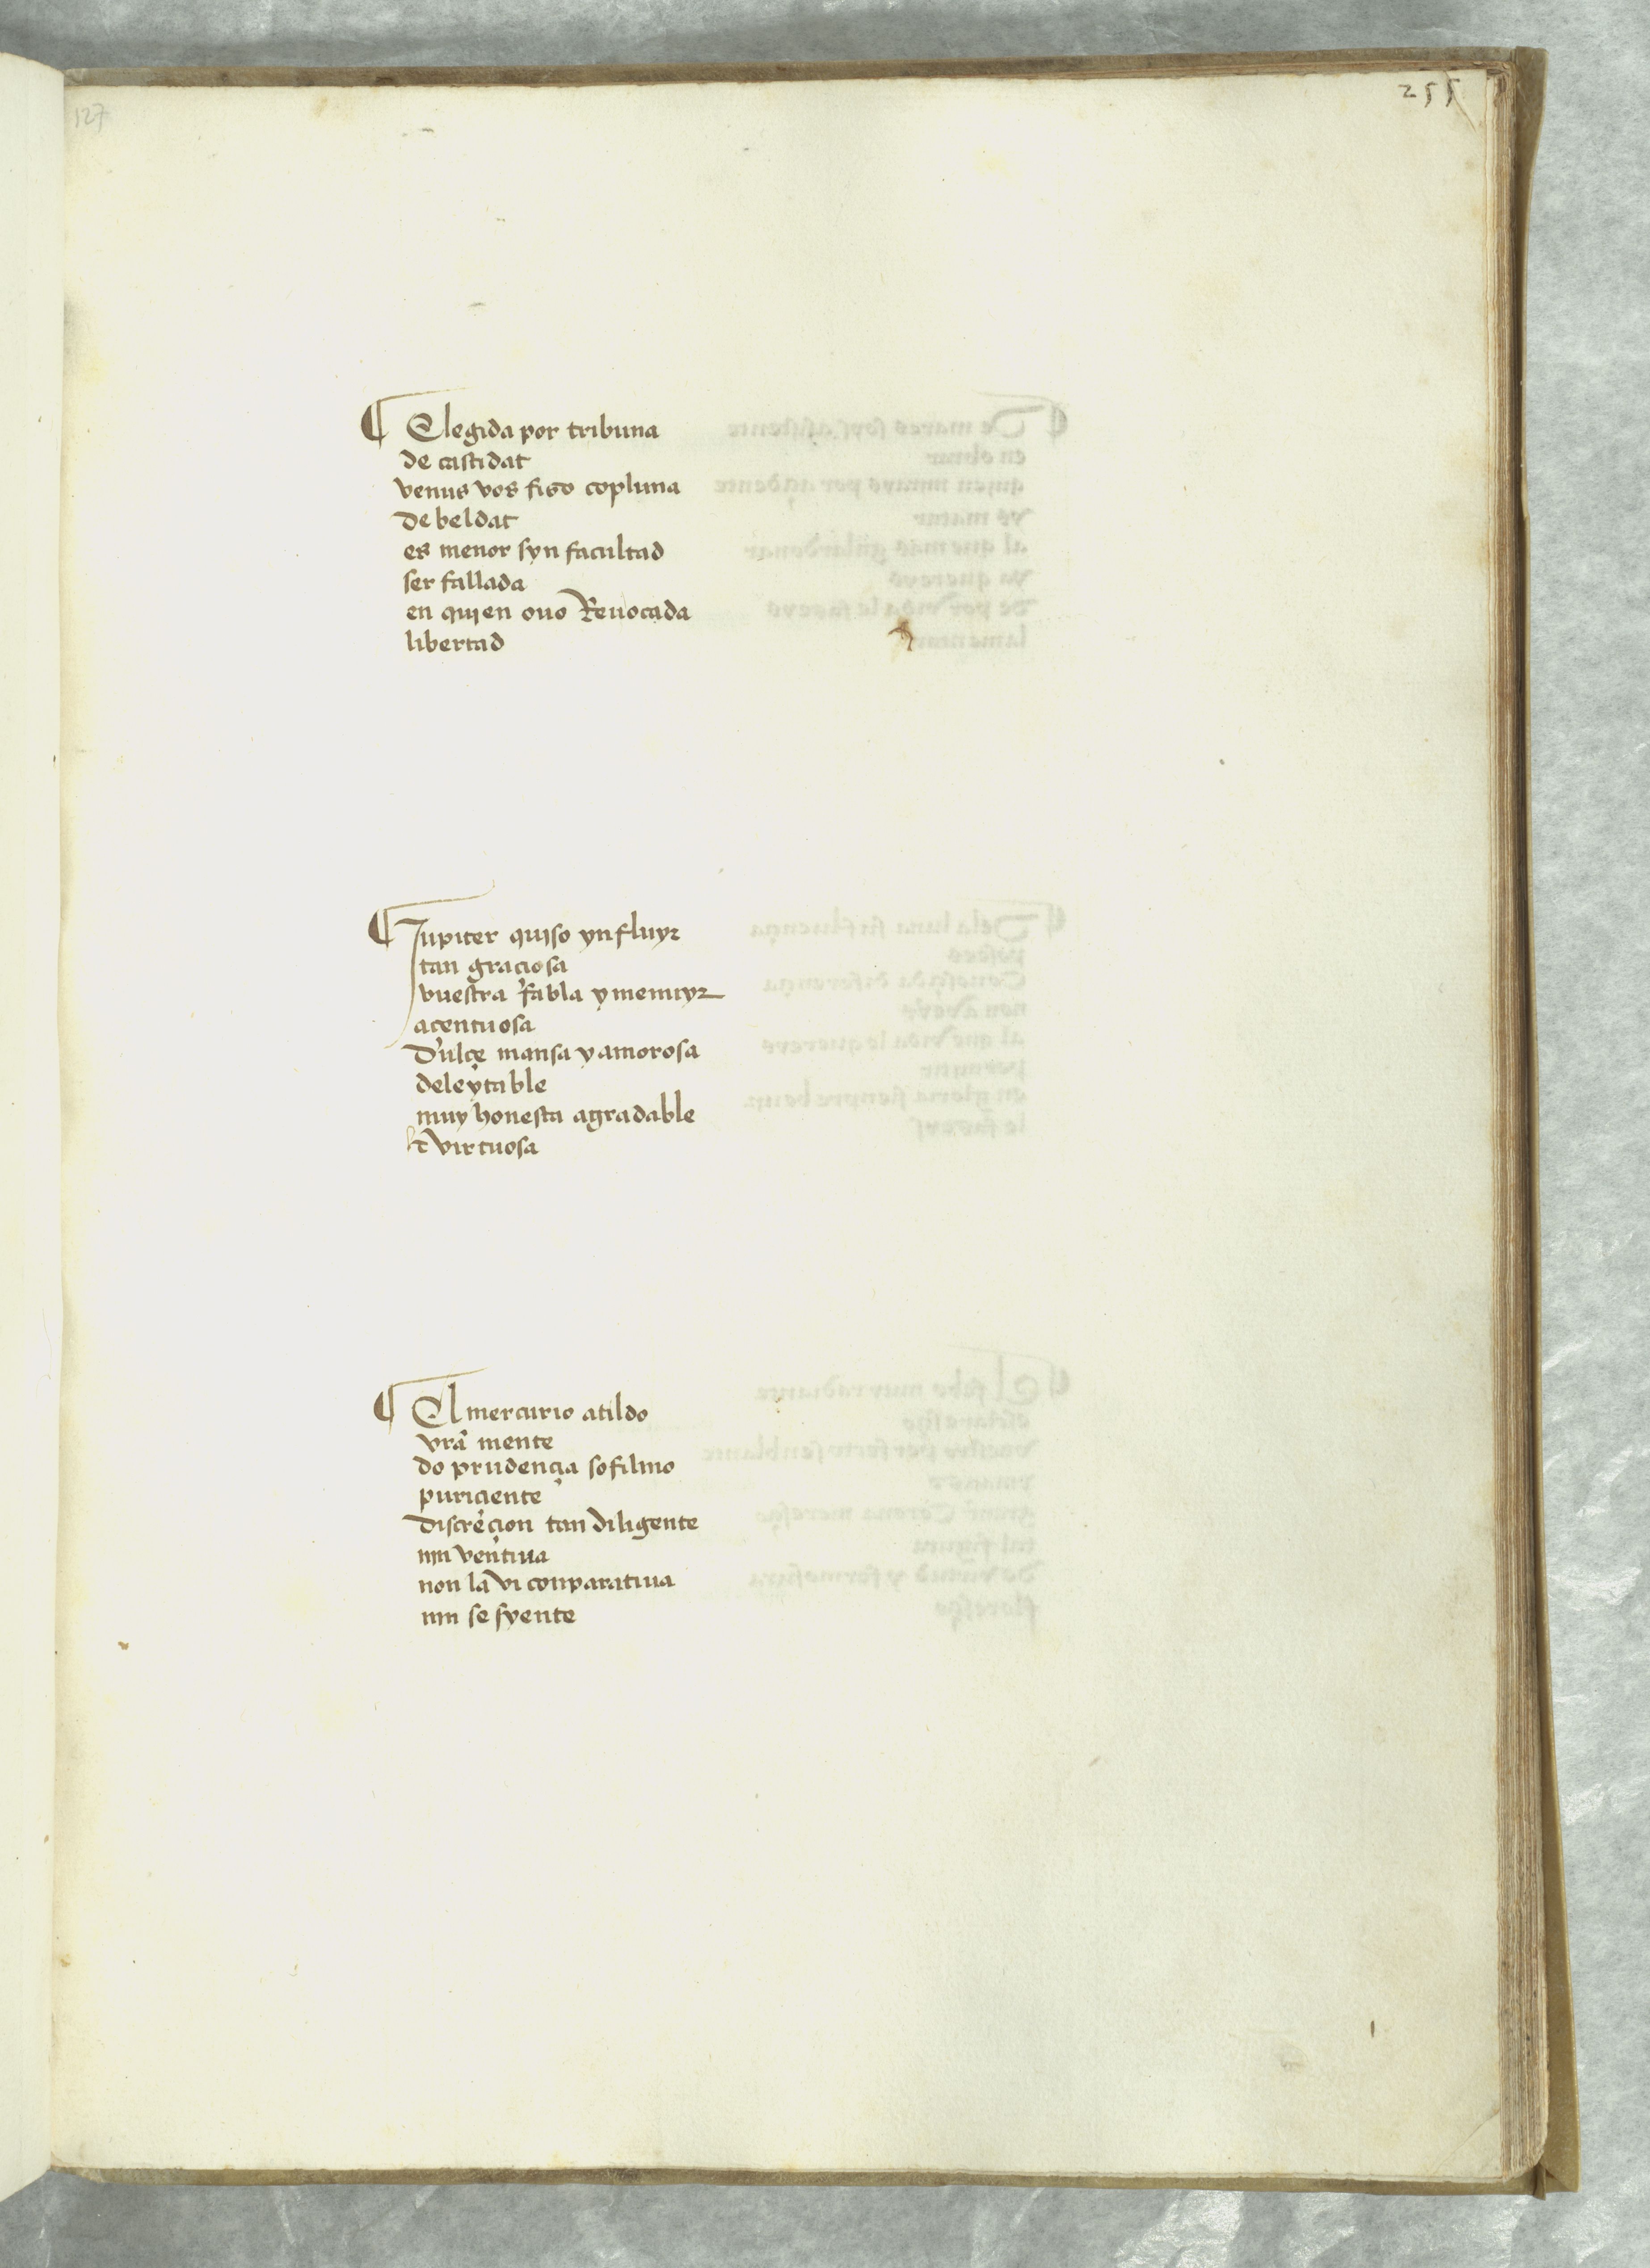 127
255
¶ Elegida por tribuna
de castidat
venus vos fizo copluna
de beldat
es menor syn facultad
ser fallada
en quien ouo Reuocada
libertad
¶ Jupiter quiso ynfluyr
tan graciosa
vuestra fabla y
acentuosa
dulçe mansa y amorosa
deleytable
muy honesta agradable
⁊ virtuosa
¶ El mercurio atildo
vrã mente
do prudençia sofilmo
puriciente
discreçion tan diligente
nin ventiua
non la vi conparatiua
nin se syente